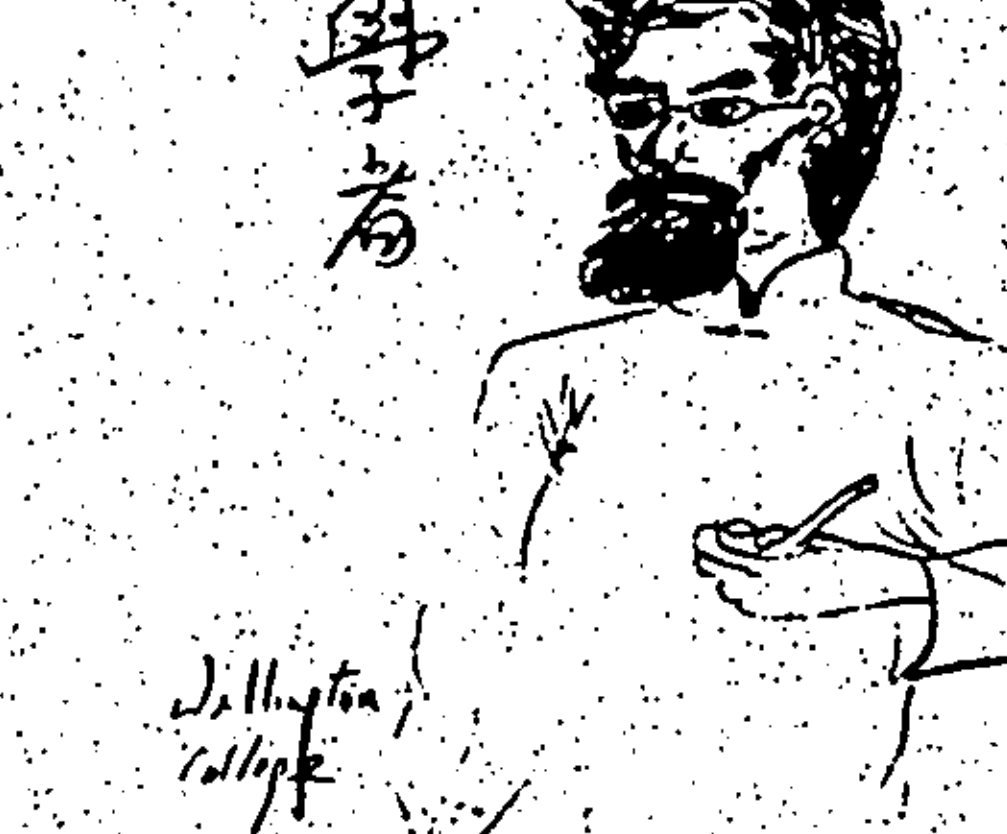 學者
Wellington
College